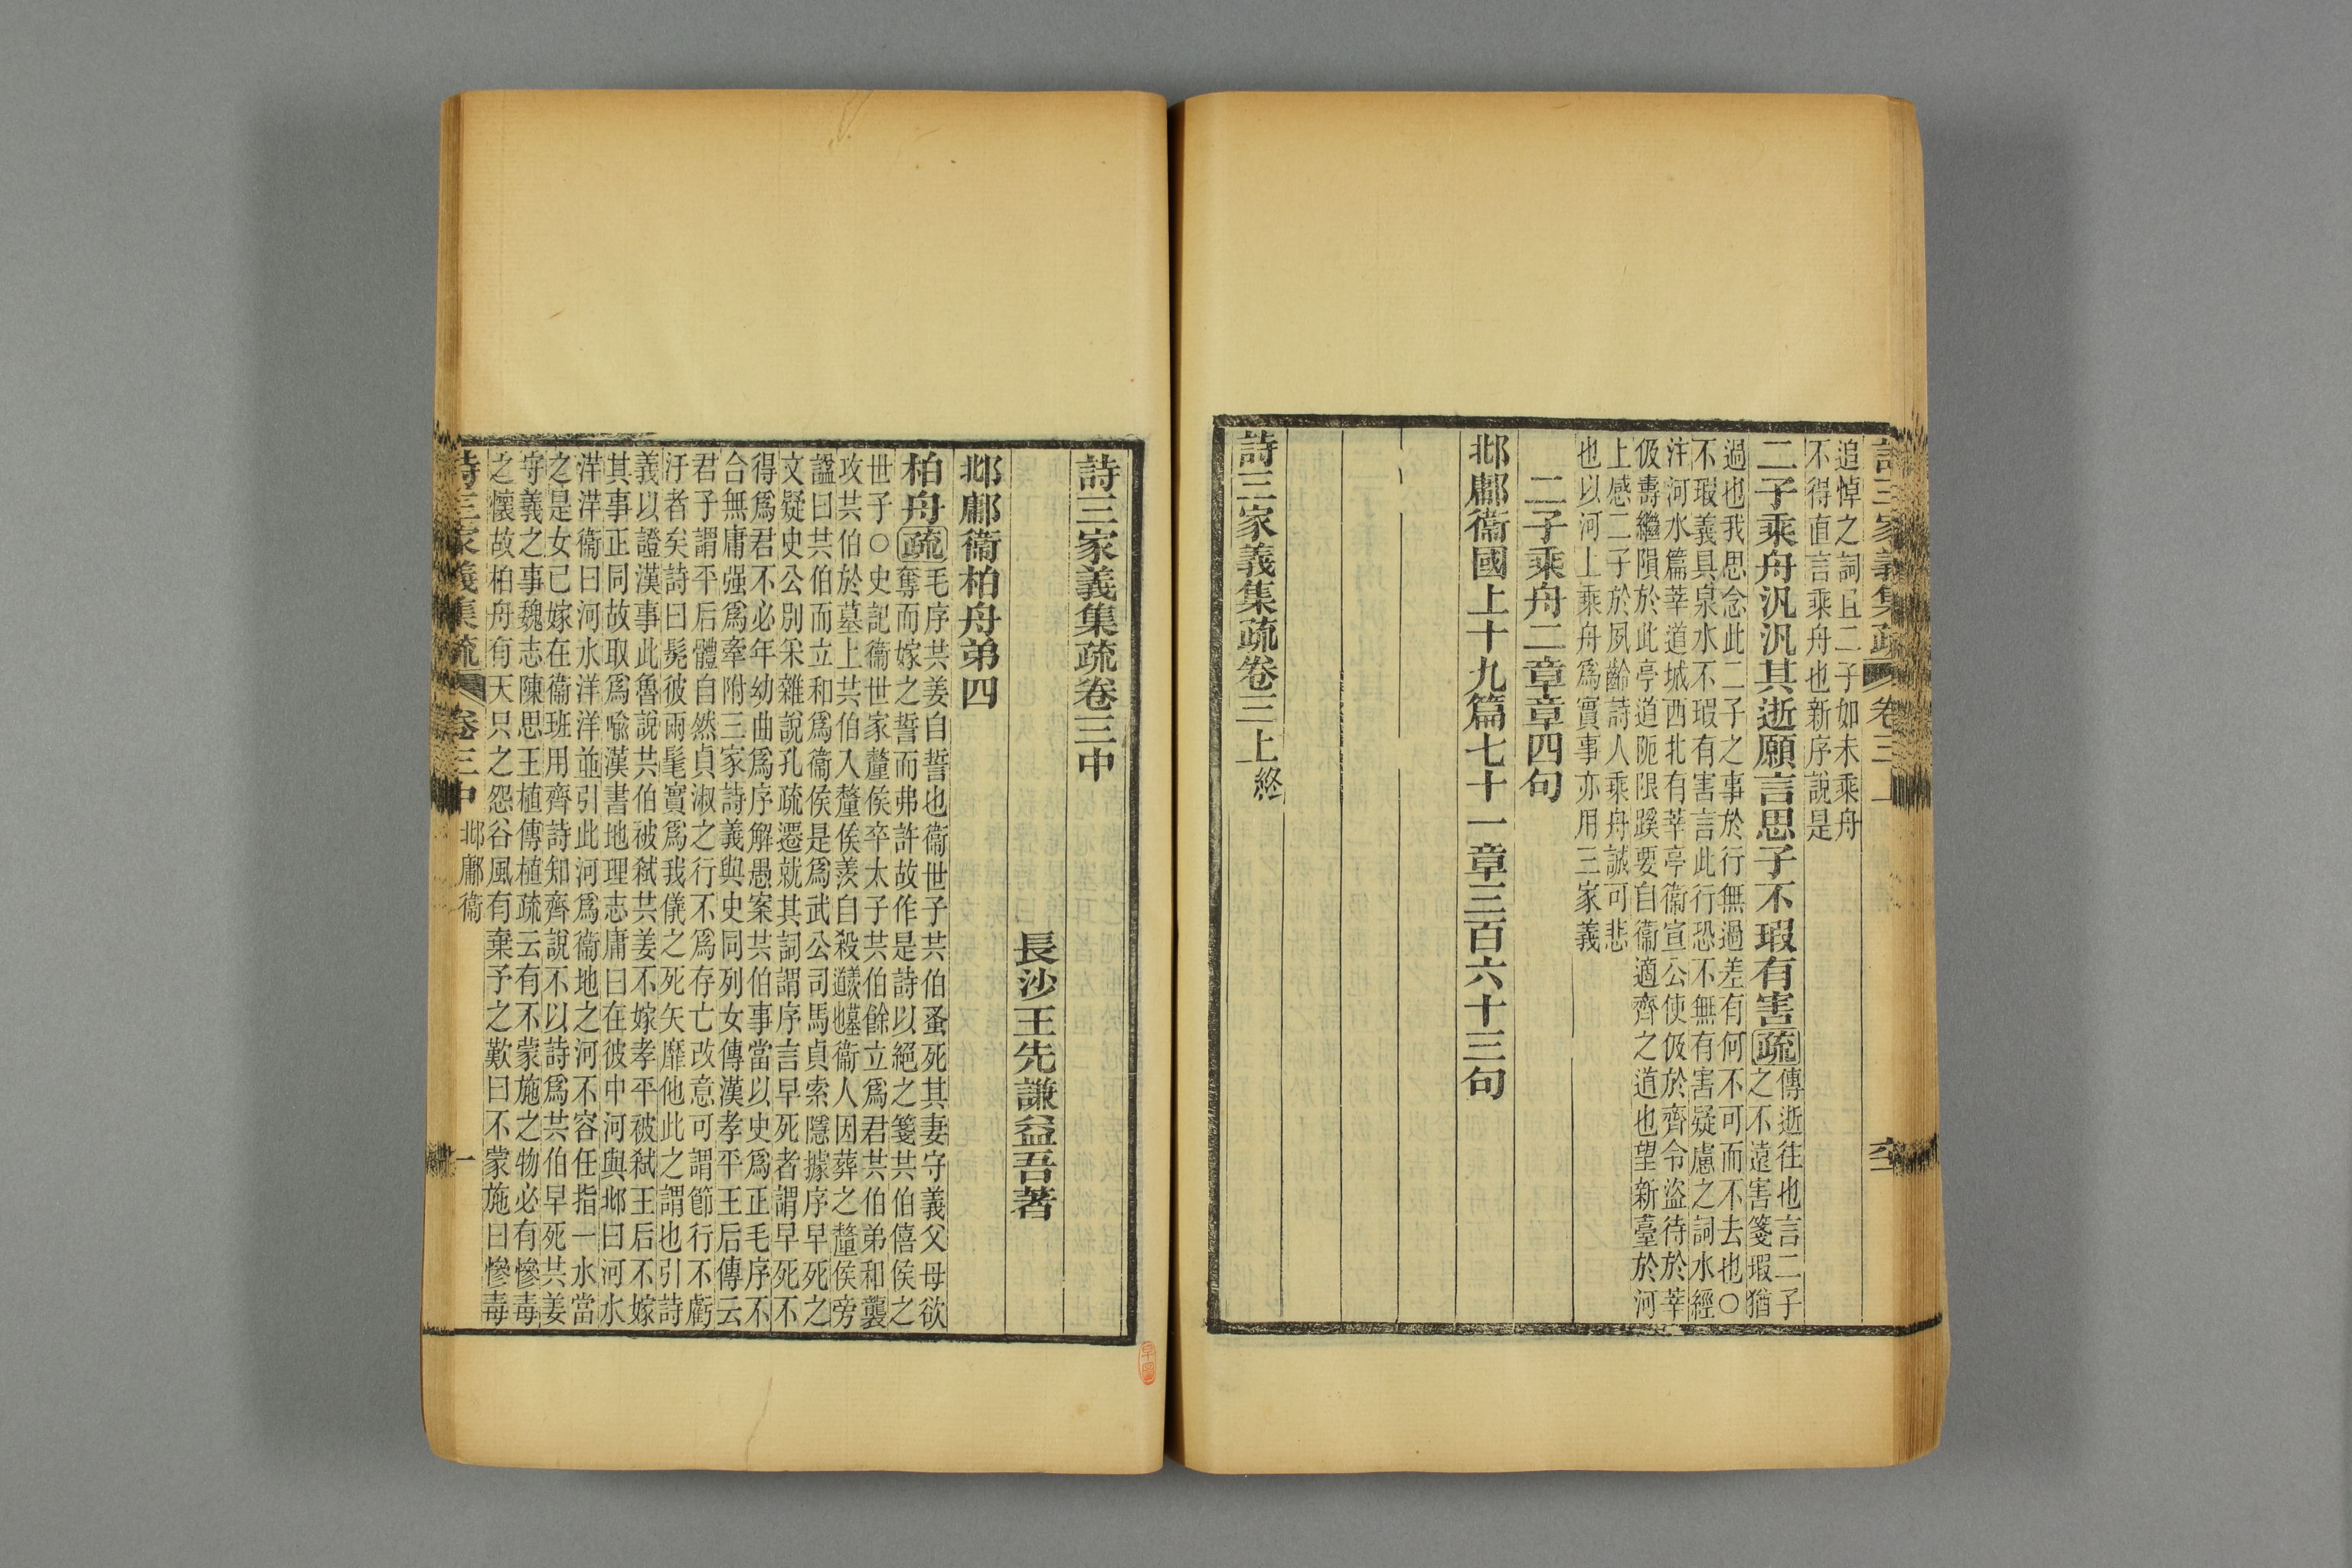 詩三家義集疏 卷三上
追悼之詞且二子如未乘舟
不得直言乘舟也新序說是
二子乘舟汎汎其逝願言思子不瑕有害疏
傳逝往也言二子
之不遠害箋瑕猶
過也我思念此二子之事於行無過差有何不可而不去也○
不瑕義具泉水不瑕有害言此行恐不無有害疑慮之詞水經
注河水篇莘道城西北有莘亭衞宣公使伋於齊令盜待於莘
伋壽繼隕於此亭道阨限蹊要自衞適齊之道也望新臺於河
上感二子於夙齡詩人乘舟誠可悲
也以河上乘舟爲實事亦用三家義
二子乘舟二章章四句
邶鄘衞國上十九篇七十一章三百六十三句
詩三家義集疏卷三上終
詩三家義集疏卷三中
長沙王先謙益吾著
邶鄘衞柏舟弟四
柏舟疏
毛序共姜自誓也衞世子共伯蚤死其妻守義父母欲
奪而嫁之誓而弗許故作是詩以絕之箋共伯僖侯之
世子○史記衞世家釐侯卒太子共伯餘立爲君共伯弟和襲
攻共伯於墓上共伯入釐侯羨自殺衞人因葬之釐侯旁
諡曰共伯而立和爲衞侯是爲武公司馬貞索隱據序早死之
文疑史公別采雜說孔疏遷就其詞謂序言早死者謂早死不
得爲君不必年幼曲爲序解愚案共伯事當以史爲正毛序不
合無庸强爲牽附三家詩義與史同列女傳漢孝平王后傳云
君子謂平后體自然貞淑之行不爲存亡改意可謂節行不虧
汙者矣詩曰髧彼兩髦實爲我儀之死矢靡他此之謂也引詩
義以證漢事此魯說共伯被弒共姜不嫁孝平被弒王后不嫁
其事正同故取爲喻漢書地理志庸曰在彼中河與邶曰河水
洋洋衞曰河水洋洋並引此河爲衞地之河不容任指一水當
之是女己嫁在衞班用齊詩知齊說不以詩爲共伯早死共姜
守義之事魏志陳思王植傳植疏云有不蒙施之物必有慘毒
之懷故柏舟有天只之怨谷風有棄予之歎曰不蒙施曰慘毒
詩三家義集疏 卷三中 邶鄘衞 一